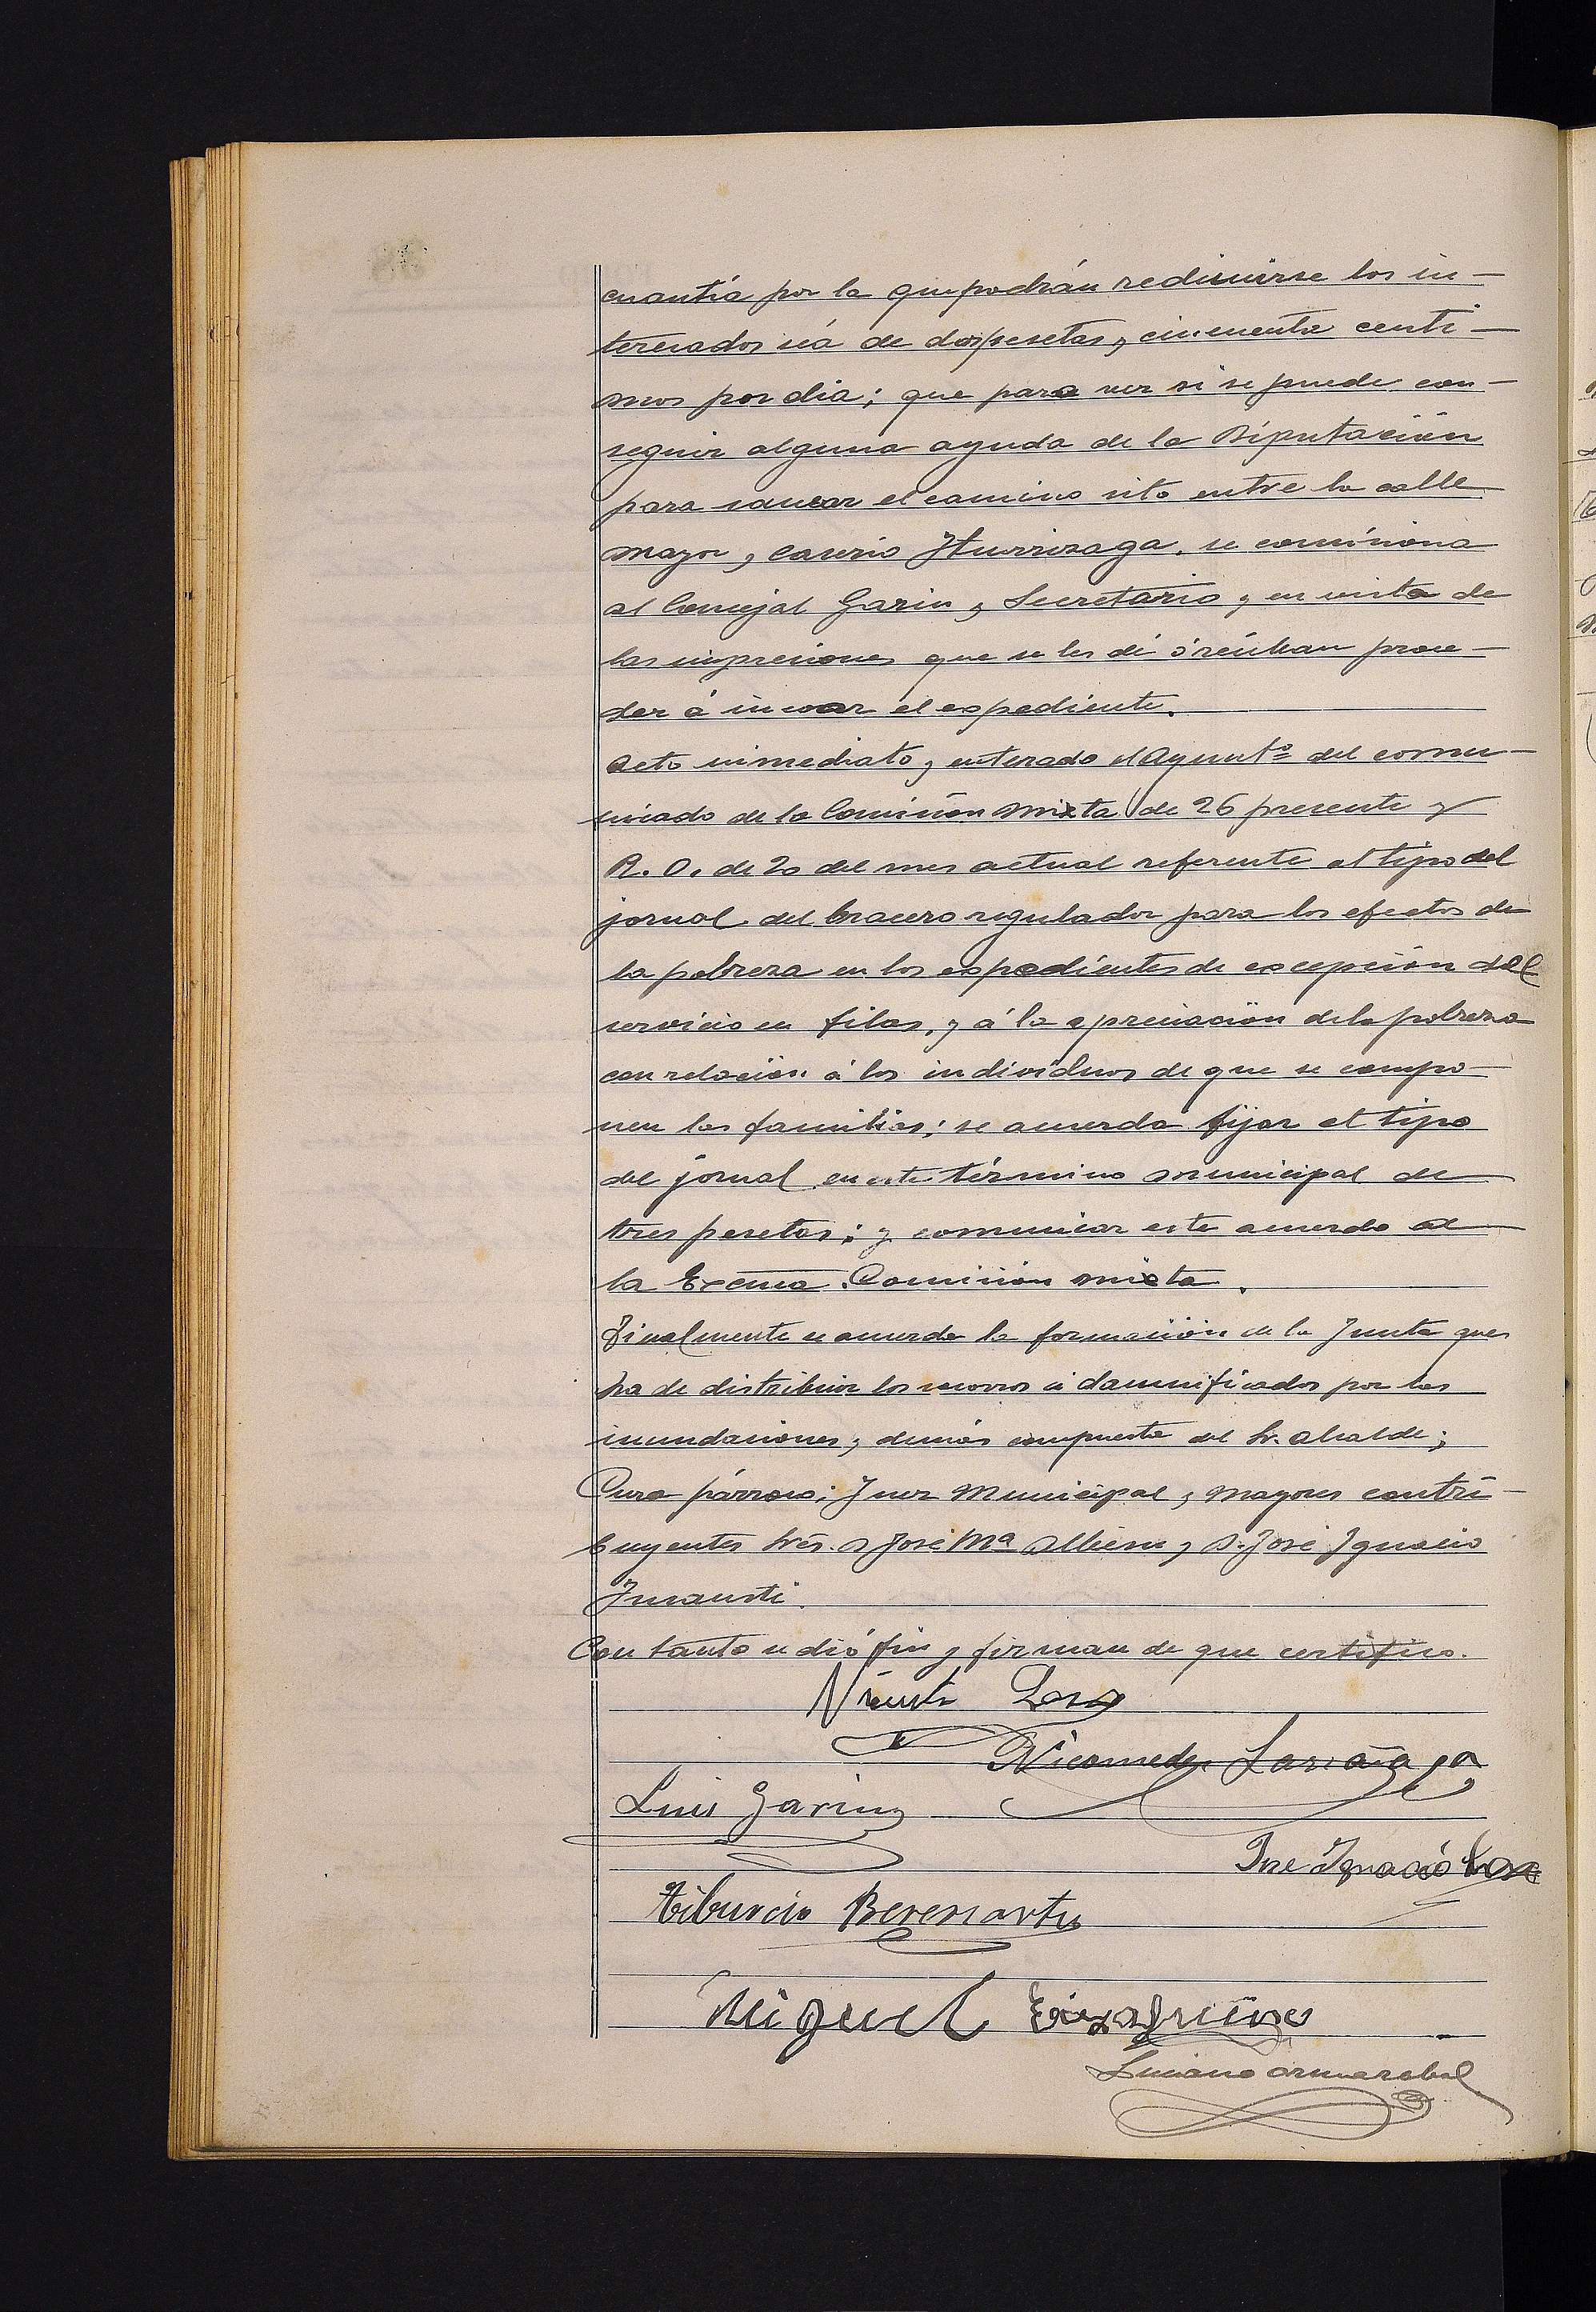 cuantía por la que podrán redimirse los in-
teresados séa de dos pesetas y cincuenta centi-
mos por dia; que para ver si se puede con-
seguir alguna ayuda de la Diputación
para sanear el camino sito entre la calle
mayor y caserio Iturrizaga, se comisiona
al Concejal Garin y Secretario y en vista de
las impresiones que se les dé ó reciban proce-
der á incoar el expediente.
Acto inmediato y enterado el Ayuntº del comu-
nicado de la Comisión Mixta de 26 presente y
R. O. de 20 del mes actual referente al tipo del
jornal del bracero regulador para los efectos de
la pobreza en los expedientes de excepción del
servicio en filas, y á la apreciación de la pobreza
con relación á los individuos de que se compo-
nen las familias; se acuerda fijar el tipo
del jornal en este término municipal de
tres pesetas; y comunicar este acuerdo a
la Excma. Comisión mixta.
Finalmente se acuerda la formación de la Junta que
ha de distribuir los socorros á damnificados por las
inundaciones, y demás compuesta del Sr. alcalde;
Cura párroco; Juez Municipal y mayores contri-
buyentes Srés. D José Mª y D. José Ignacio
Inzausti.
Con tanto se dió fin y firman de que certifico.
Vicente
Nicomedes Larrañaga
Luis Garin
Jose Ignacio
Tiburcio Berenartu
Miguel
Luciano Ormazabal